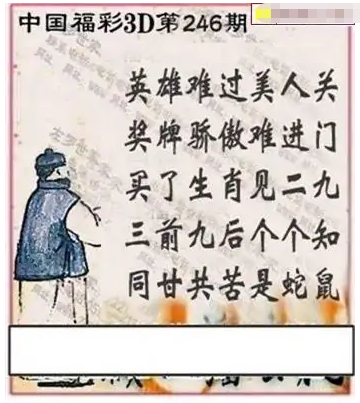 中国福彩3D第246期
英雄难过美人关
奖牌骄傲难进门
买了生肖见二九
三前九后个个知
同甘共苦是蛇鼠